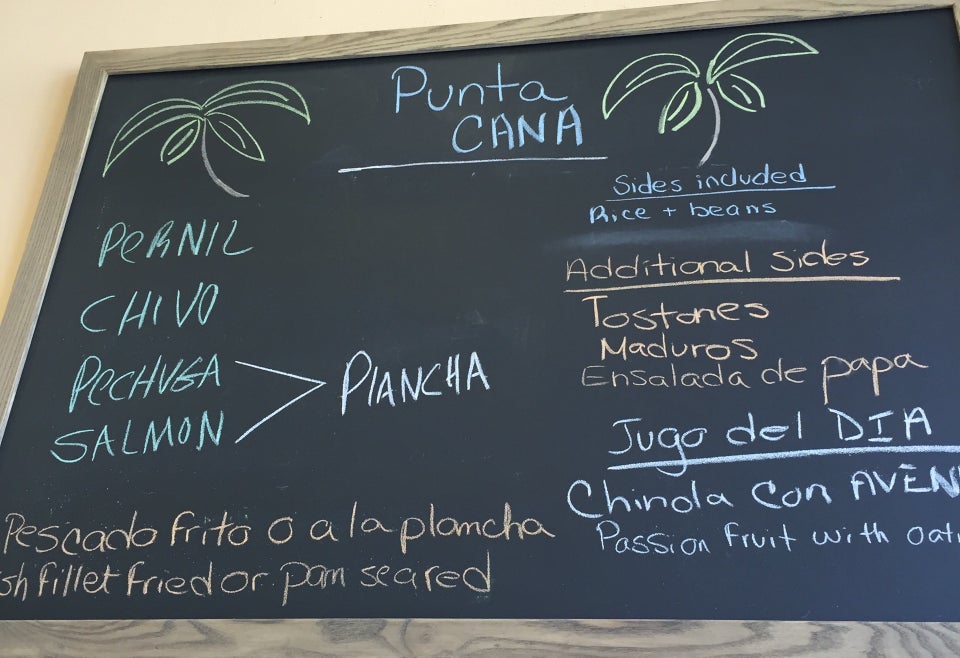 Punta
CANA
PERNIL
CHIVO
PECHUGA
SALMON
PLANCHA
Pescado frito o a la plancha
fillet fried or pan seared
Sides included
Rice + beans
Additional sides
Tostones
Maduros
Ensalada de papa
Jugo del DIA
Chinola con
Passion fruit with